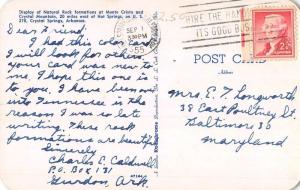 Display of Natural Rock formations at Monte Cristo and
Crystal Mountain, 20 miles west of Hot Springs, on U. S.
270, Crystal Springs, Arkansas.
Dear Friend,
I has this color Car
I will look for others
your card was new to
me, I hope this one is
to you. I have been over
into Tennessee is the
reason I was so late
writing. These rock
formations are beautiful
Sincerely
Charles E. Caldwell
P.O. Box 131
Gurdon, Ark.
SEP
PM
55
HIRE THE HAN
IT'S GOOD BUS
2¢
POST CARD
Address
Mrs. E. T. Longworth
38 East Poultney St.
Baltimore 30
Maryland